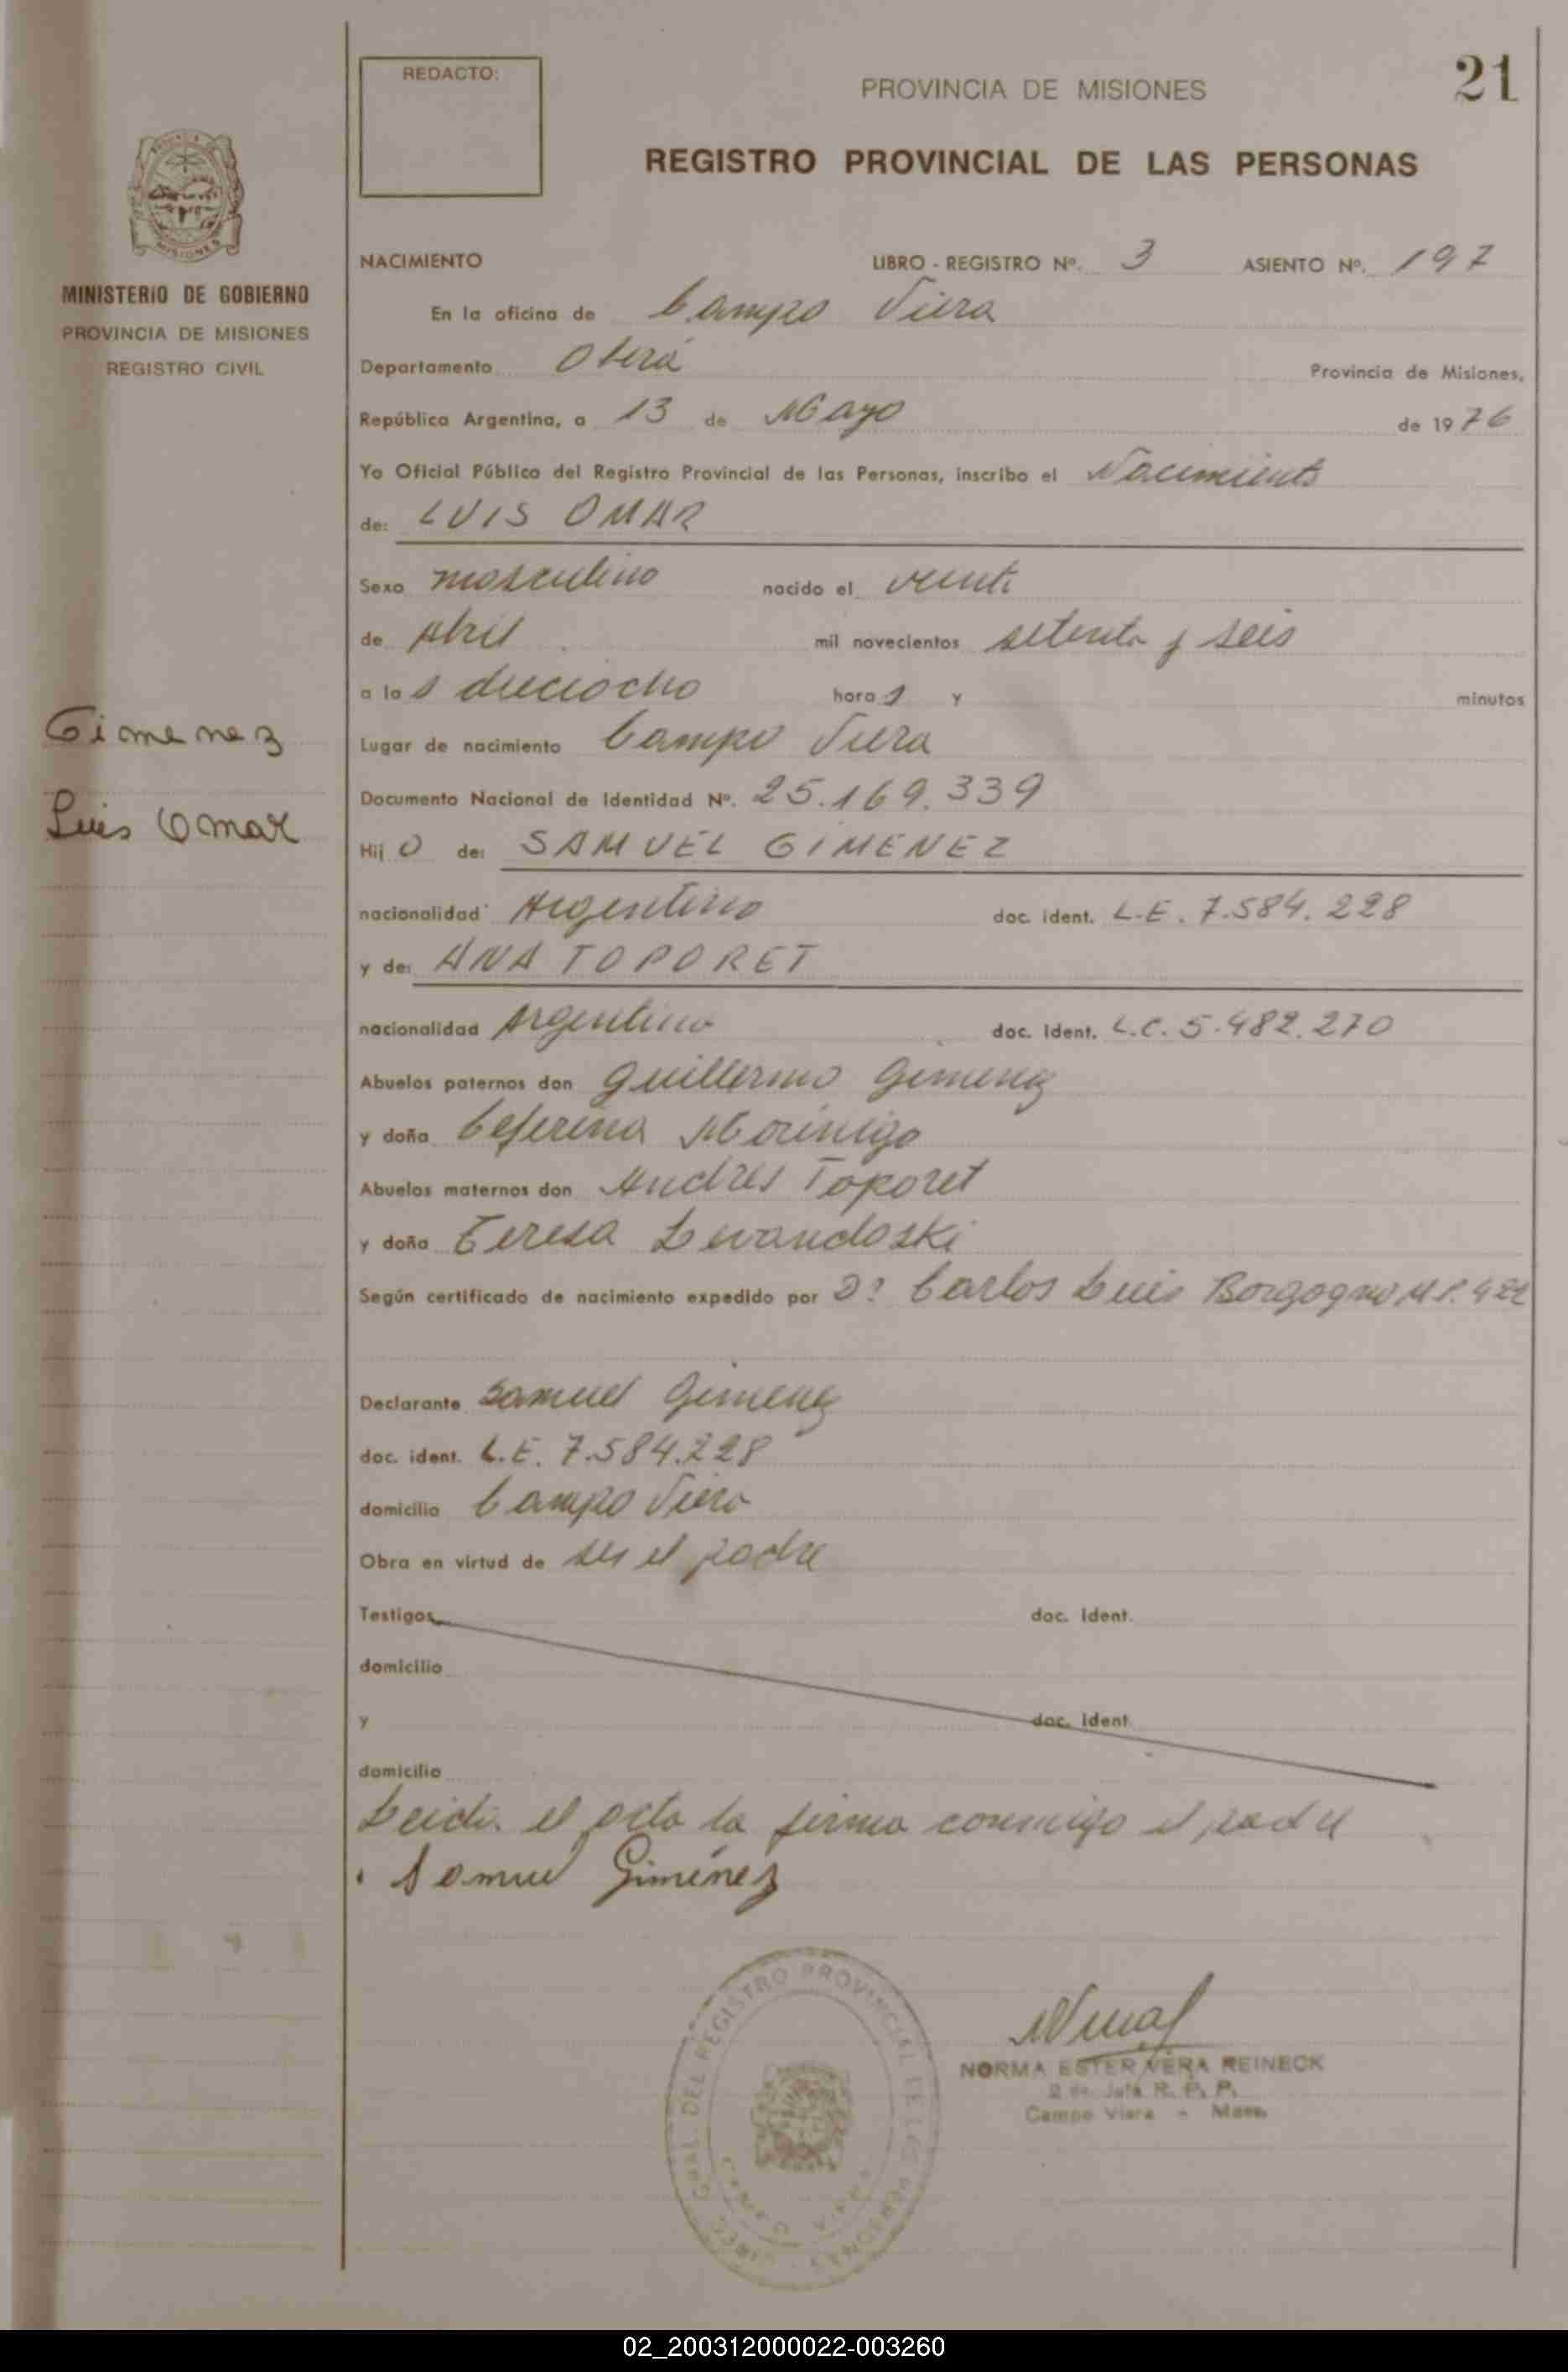 REDACTO:
PROVINCIA DE MISIONES
21
REGISTRO PROVINCIAL DE LAS PERSONAS
MISIONES
MINISTERIO DE GOBIERNO
PROVINCIA DE MISIONES
REGISTRO CIVIL
NACIMIENTO LIBRO - REGISTRO Nº. 3 ASIENTO Nº. 197
En la oficina de Campo Viera
Departamento Oberá Provincia de Misiones,
República Argentina, a 13 de Mayo de 1976
Yo Oficial Público del Registro Provincial de las Personas, inscribo el Nacimiento
de: LUIS OMAR
Sexo masculino nacido el veinte
de Abril mil novecientos setenta y seis
a las dieciocho horas y minutos
Gimenez
Luis Omar
Lugar de nacimiento Campo Viera
Documento Nacional de Identidad Nº. 25.169.339
Hijo de: SAMUEL GIMENEZ
nacionalidad Argentino doc. ident. L.E. 7.584.228
y de: ANA TOPORET
nacionalidad Argentina doc. ident. L.C. 5.482.270
Abuelos paternos don Guillermo Gimenez
y doña Ceferina Morinigo
Abuelos maternos don Andres Toporet
y doña Teresa Levandoski
Según certificado de nacimiento expedido por Dr Carlos Luis Borgogno M.P. 422
Declarante Samuel Gimenez
doc. ident. L.E. 7.584.228
domicilio Campo Viera
Obra en virtud de ser el padre
Testigos doc. ident.
domicilio
y doc. ident.
domicilio
Leida el acta la firma conmigo el padre
Samuel Giménez
NORMA ESTER VERA REINECK
2da. Jefa R. P. P.
Campo Viera - Mnes.
DIREC. GRAL. DEL REGISTRO PROVINCIAL DE LAS PERSONAS
CAMPO VIERA
02_200312000022-003260